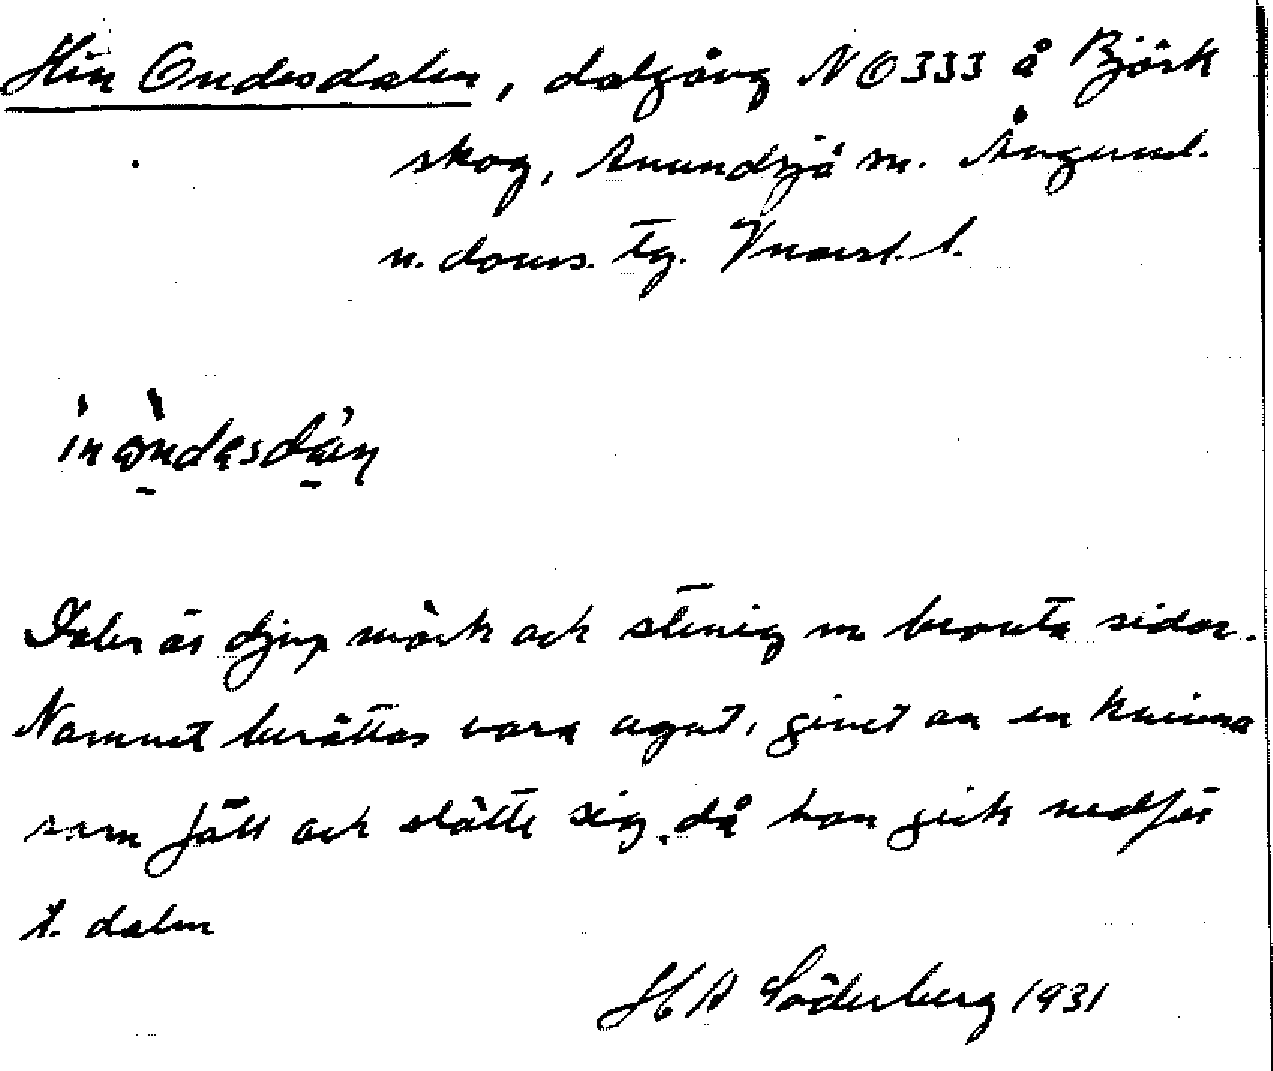 Hin Ondesdalen, dalgång NO 333 å Björk
skog, Anundsjö sn. Ångerml.
n. doms. tg. Vnorrl. l.
in òndesdáɳ
Dalen är djup mörk och stenig m branta sidor.
Namnet berättas vara ngnt, givet av en kvinna
som föll och slötte sig då hon gick nedför
t. dalen
H A Söderberg 1931